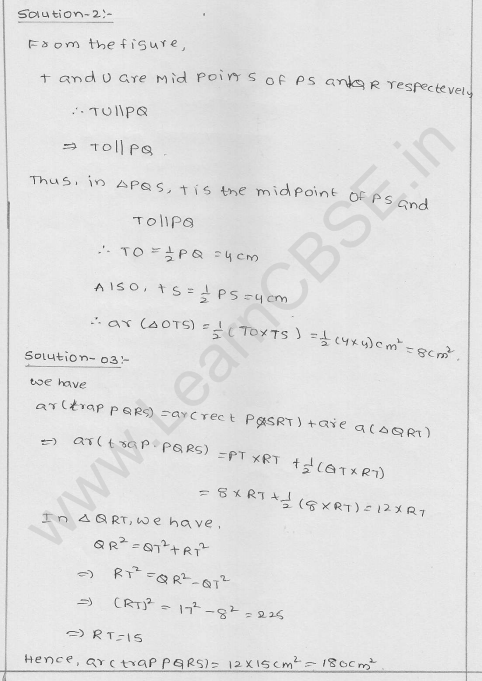 Solution-2:-
From the figure,
T and U are mid points of PS and QR respectevely
∴ TU||PQ
⇒ TO||PQ
Thus, in △PQS, T is the midpoint of PS and
TO||PQ
∴ TO = 1/2 PQ = 4cm
Also, TS = 1/2 PS = 4cm
∴ ar (△OTS) = 1/2 (TO×TS) = 1/2 (4×4)cm² = 8cm².
Solution-03:-
we have
ar(trap PQRS) = ar(rect PQSRT) + are a(△QRT)
⇒ ar(trap. PQRS) = PT×RT + 1/2 (QT×RT)
= 8×RT + 1/2 (8×RT) = 12×RT
In △QRT, we have,
QR² = QT² + RT²
⇒ RT² = QR² - QT²
⇒ (RT)² = 17² - 8² = 225
⇒ RT = 15
Hence, ar(trap PQRS) = 12×15cm² = 180cm²
www.LearnCBSE.in